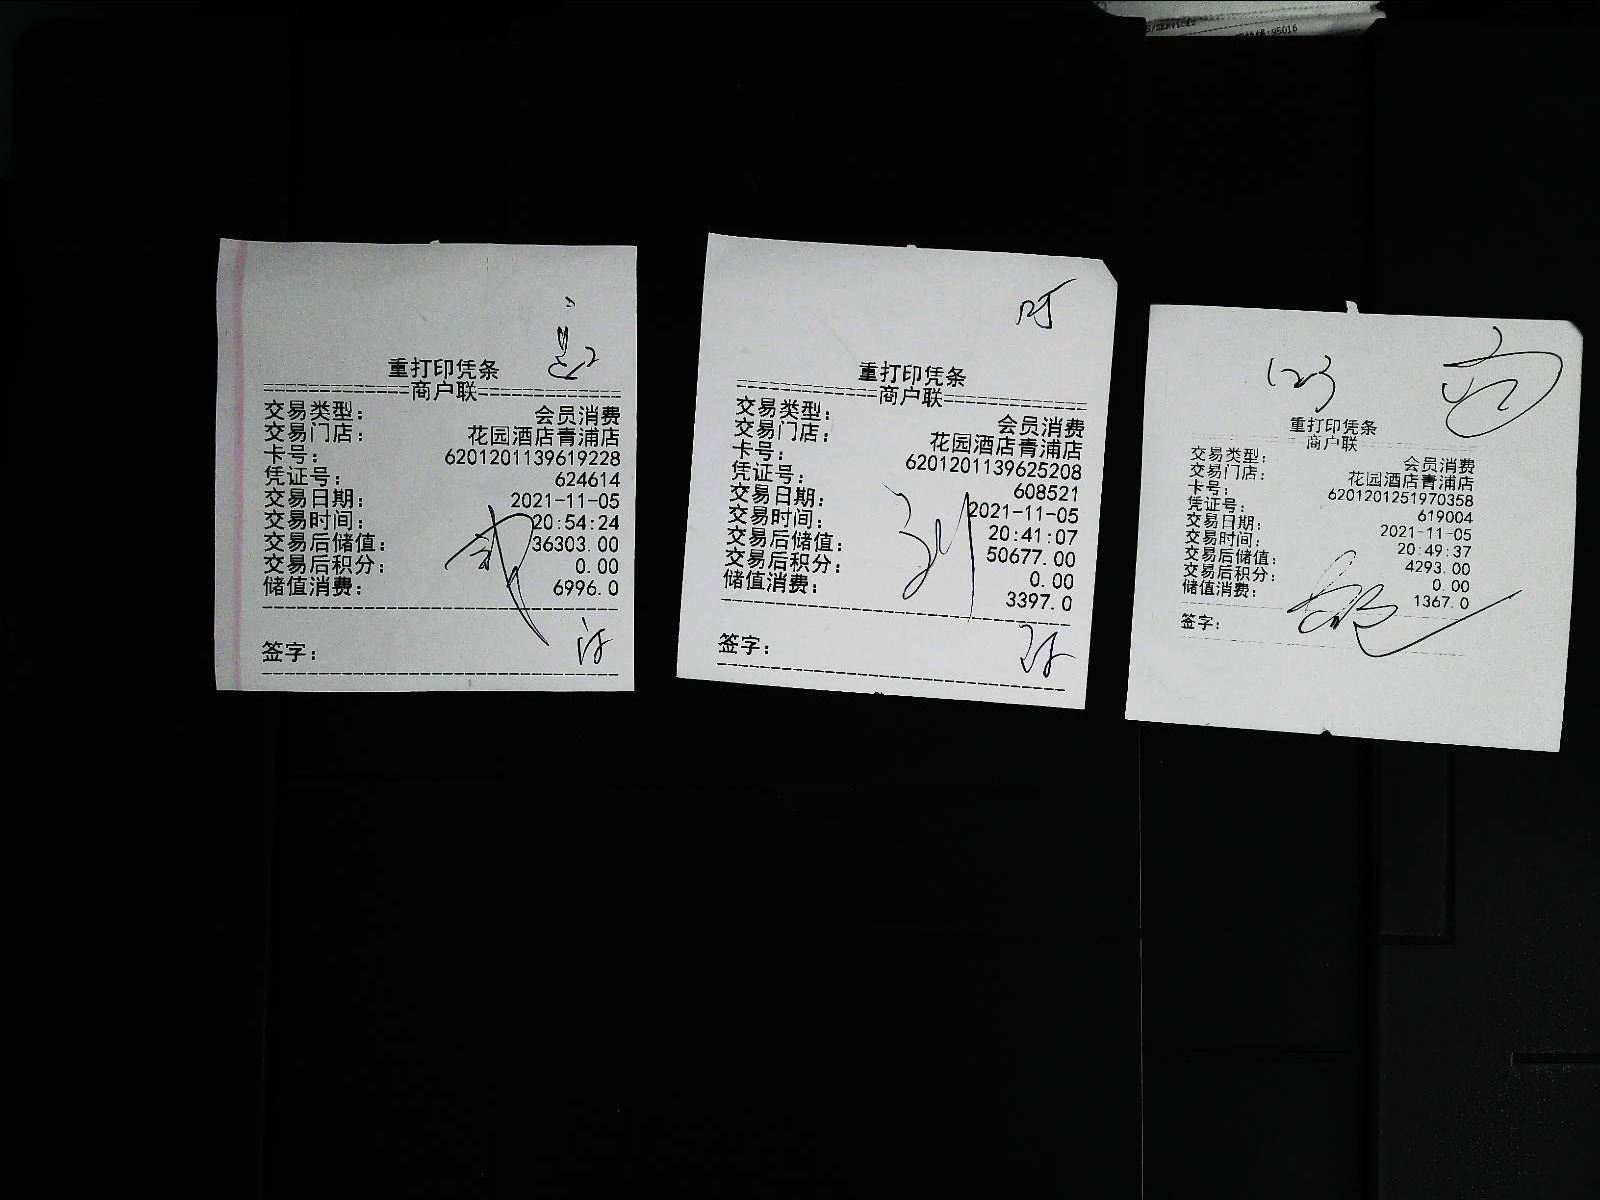 重打印凭条
商户联
交易类型： 会员消费
交易门店： 花园酒店青浦店
卡号： 6201201139619228
凭证号： 624614
交易日期： 2021-11-05
交易时间： 20:54:24
交易后储值： 36303.00
交易后积分： 0.00
储值消费： 6996.0
签字：
重打印凭条
商户联
交易类型： 会员消费
交易门店： 花园酒店青浦店
卡号： 6201201139625208
凭证号： 608521
交易日期： 2021-11-05
交易时间： 20:41:07
交易后储值： 50677.00
交易后积分： 0.00
储值消费： 3397.0
签字：
123
重打印凭条
商户联
交易类型： 会员消费
交易门店： 花园酒店青浦店
卡号： 6201201251970358
凭证号： 619004
交易日期： 2021-11-05
交易时间： 20:49:37
交易后储值： 4293.00
交易后积分： 0.00
储值消费： 1367.0
签字：